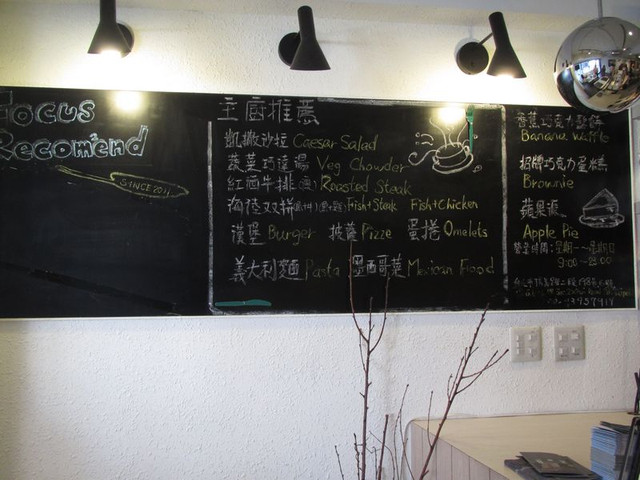 Focus
Recom'end
SINCE 2011
主廚推薦
凱撒沙拉 Caesar Salad
蔬菜巧達湯 Veg Chowder
紅酒牛排 Roasted Steak
海陸双拼 Fish+Steak Fish+Chicken
漢堡 Burger 披薩 Pizze 蛋捲 Omelets
義大利麵 Pasta 墨西哥菜 Mexican Food
香蕉巧克力鬆餅
Banana Waffle
招牌巧克力蛋糕
Brownie
蘋果派
Apple Pie
營業時間:星期一~星期日